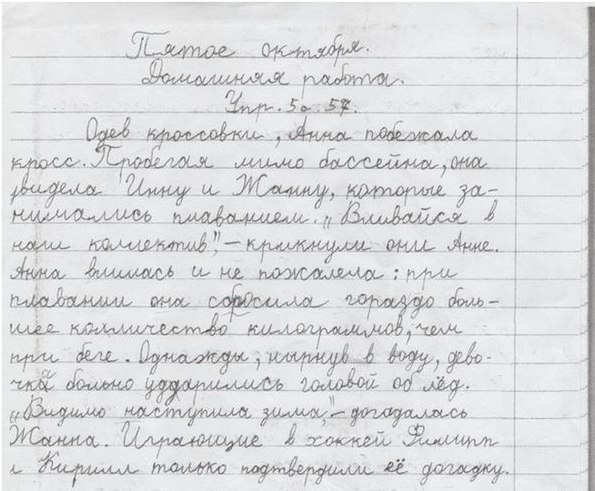 Пятое октября.
Домашняя работа.
Упр. 5 с. 57.
Одев кроссовки, Анна побежала
кросс. Пробегая мимо бассейна, она
увидела Инну и Жанну, которые за-
нимались плаванием. „Вливайся в
наш коллектив", – крикнули они Анне.
Анна влилась и не пожалела: при
плавании она сбросила гораздо боль-
шее колличество килограммов, чем
при беге. Однажды, нырнув в воду, дево-
чки больно ударились головой об лёд.
„Видимо наступила зима," – догадалась
Жанна. Играющие в хоккей Филипп
и Кирилл только подтвердили её догадку.